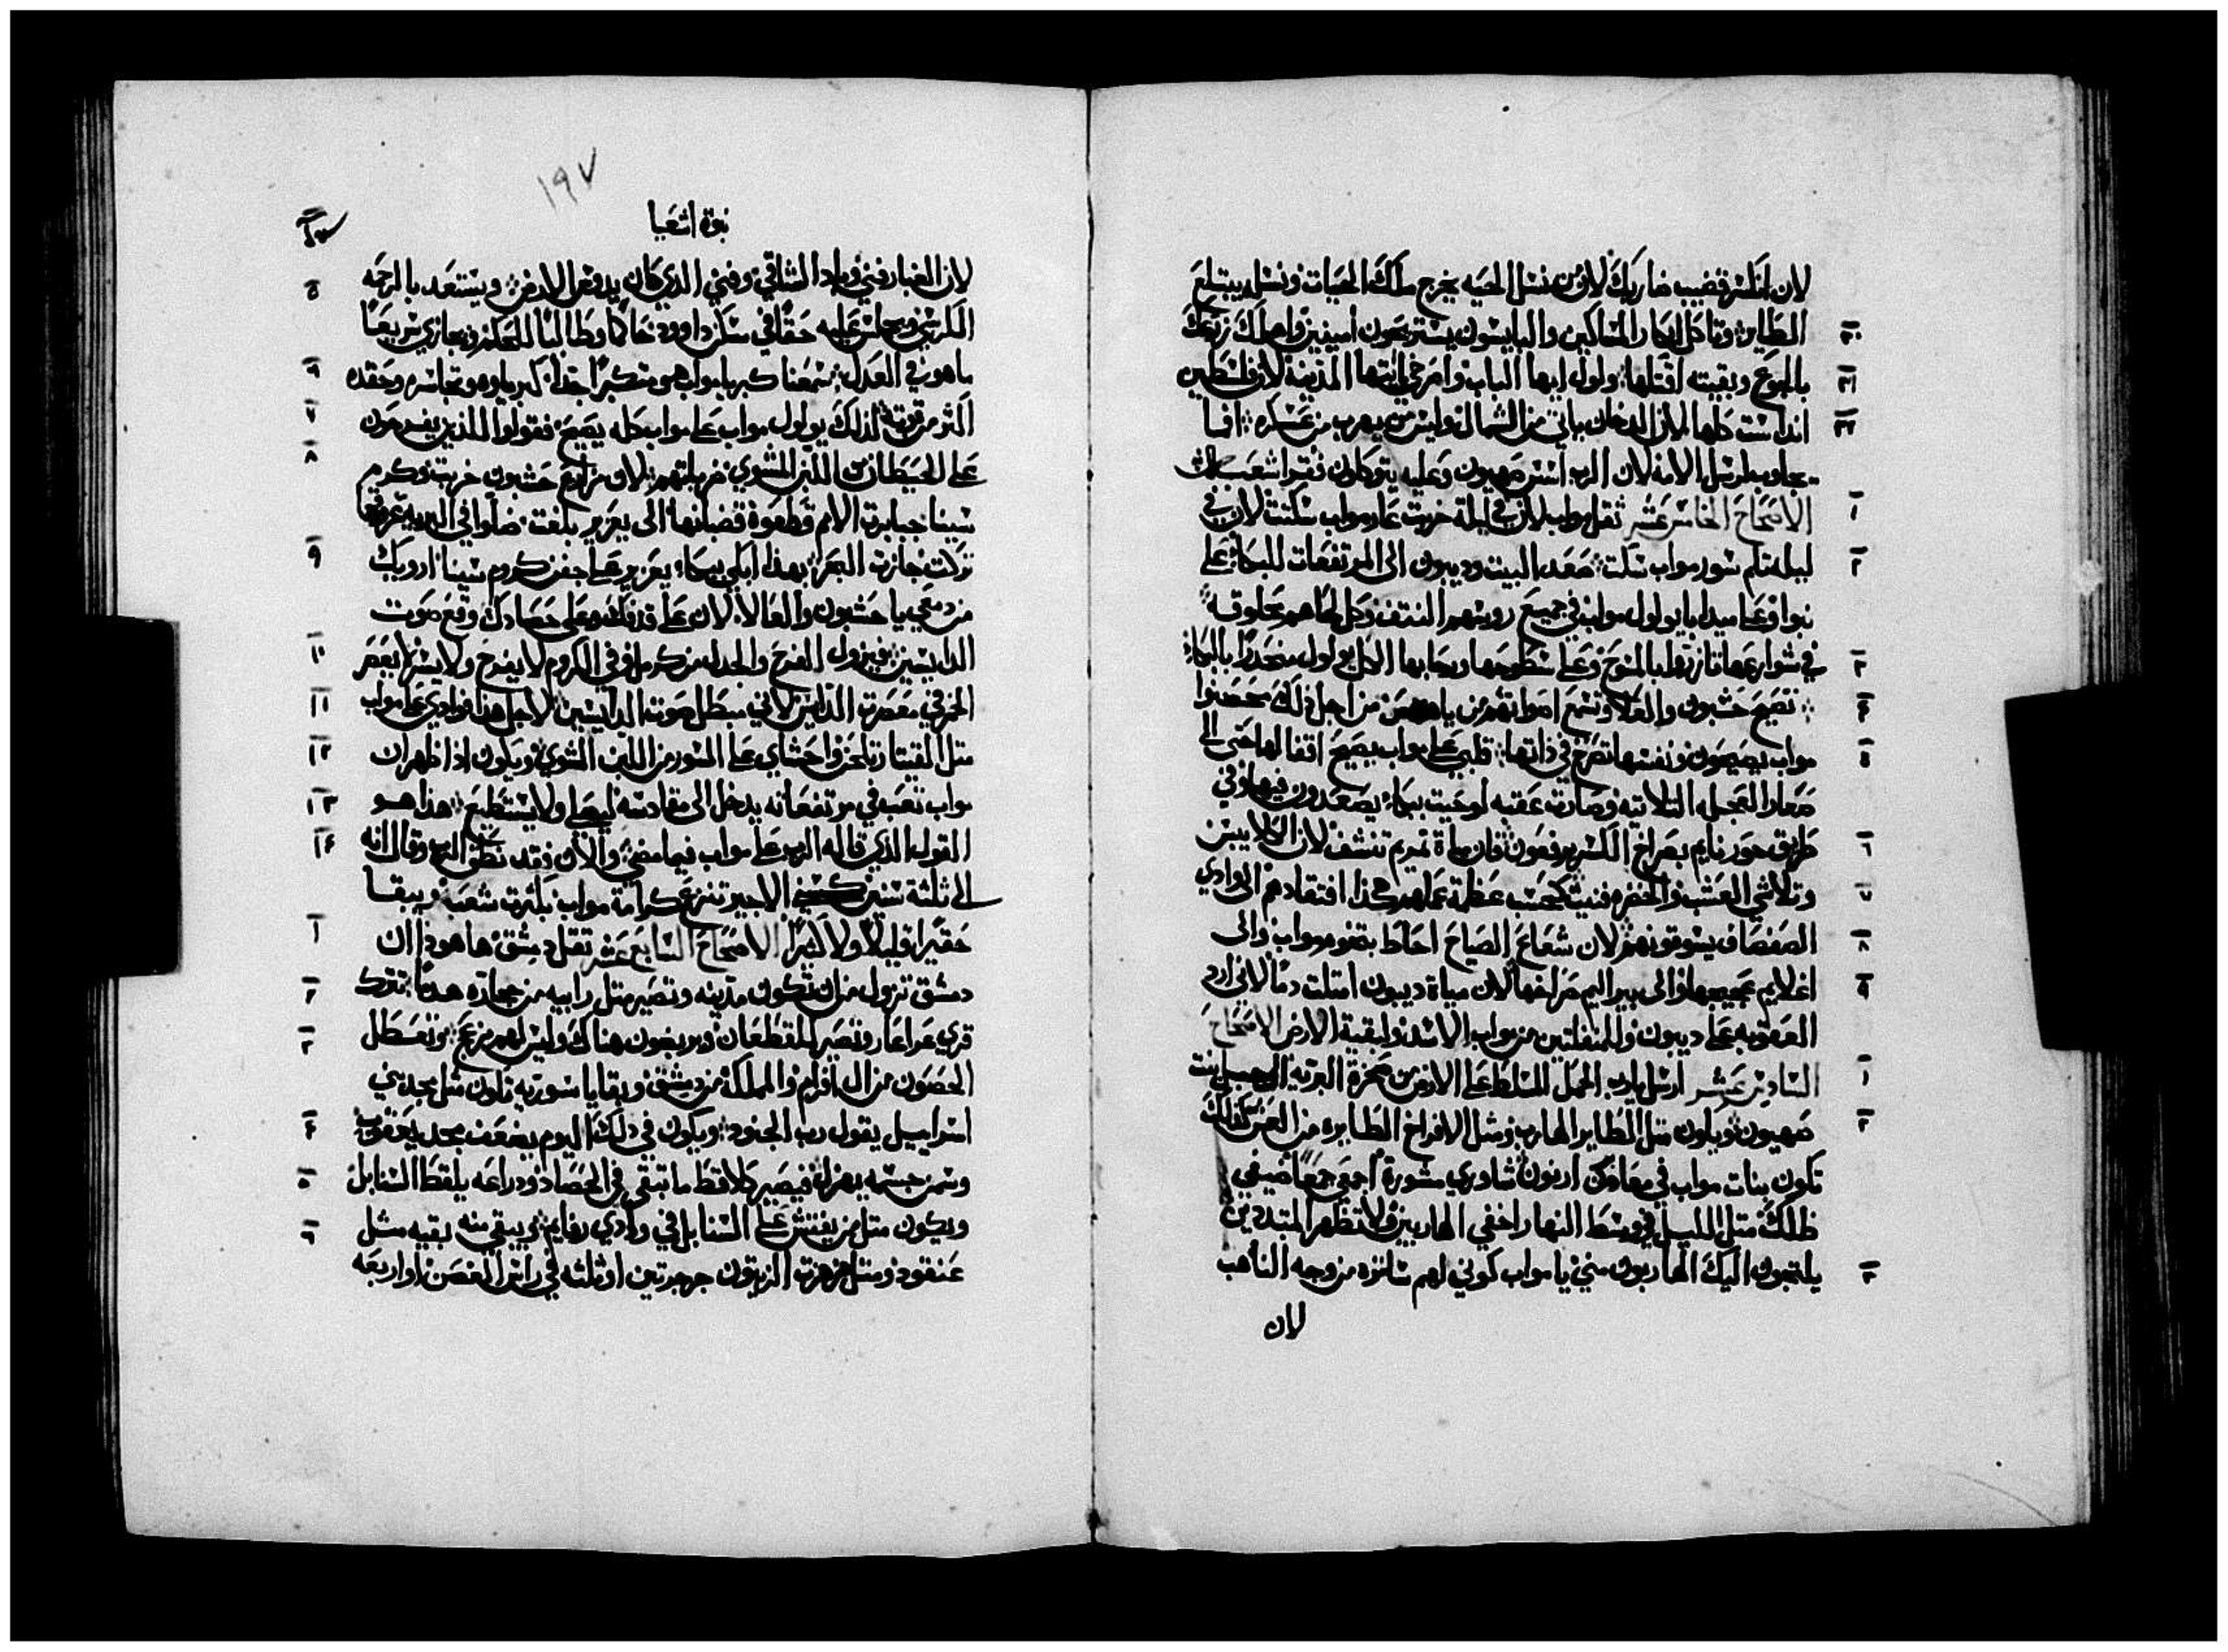 لان انكسر قضيب ضاربك لان من نسل الحيه يخرج ملك الحيات ونسله يبتلع
٣٠ الطاير وتاكل ابكار المساكين والبايسون يستريحون امينين واهلك زرعك
٣١ بالجوع وبقيته اقتلها ولول ايها الباب واصرخي ايتها المدينه لان فلسطين
٣٢ اندست كلها لان الدخان ياتي من الشمال وليس من يهرب من عسكره فما
يجاوب رسل الامه لان الرب اسس صهيون وعليه يتوكلون فقرا شعبه
١ الاصحاح الخامس عشر ثقل مواب لان في ليلة خربت عار مواب سكتت لان في
٢ ليله تلم سور مواب سكت صعد البيت وديبون الى المرتفعات للبكاء على
نبوا وعلى ميدابا يولول مواب في جميع روسهم النتف وكل لحاهم محلوقه
٣ في شوارعها تازرت بالمسوح وعلى سطوحها ورحابها الكل يولول منحدرا بالبكاء
٤ تصيح حشبون والعلا وتسمع اصواتهم من ياهص من اجل ذلك محصنوا
٥ مواب يصيحون ونفسها تصرخ في ذاتها قلبي على مواب يصيح اقفالها حتى الى
صغار العجله الثلاثيه وصارت عقبه لوحيت ببكاء يصعدون فيها وفي
٦ طريق حورنايم بصراخ الكسر يرفعون فان مياة نمريم تنشف لان الكلا يبس
٧ وتلاشي العشب والخضره فنيت كحسب عظمة عملهم هكذا افتقادهم الى وادي
٨ الصفصاف يسوقونهم لان شعاع الصياح احاط بتخوم مواب والى
٩ اغلايم ضجيجها والى بير اليم صراخها لان مياة ديبون امتلت دما لاني ازد
العقوبه على ديبون وللمنفلتين من مواب الاسد ولبقية الارض الاصحاح
١ السادس عشر ارسل يارب الحمل المسلط على الارض من صخرة البريه الى جبل بنت
٢ صهيون ويكون مثل الطاير الهارب ومثل الافراخ الطايره من العش كذلك
تكون بنات مواب في معابر ارنون شاوري مشورة اجمعي جمعا ضيفي
ظلك مثل الليل في وسط النهار اخفي الهاربين ولا تظهر المتبددين
٣ يلتجون اليك الهاربون مني يا مواب كوني لهم ساتره من وجه الناهب
لان
١٩٧
نبوة اشعيا
لان الغبار فني وباد الشاقي وفني الذي كان يدوس الارض ويستعد بالرحمه
٥ الكرسي ويجلس عليه حقا في سكن داوود حاكما وطالبا للحكم ويجازي سريعا
٦ ماهو في العدل سمعنا كبريا مواب هو متكبر جدا كبرياوه وتجاسره وحقده
٧ اكثر من قوته لذلك يولول مواب على مواب كله يصيح فقولوا للذين يفرحون
٨ على الحيطان من اللبن المشوي ضرباتهم لان مزارع حشبون خربت وكرم
سبينا جبابرة الامم قطعوا قضبانها الى يعزير بلغت ضلوا في البريه غروسها
٩ تركت جازت البحر بهذا ابكي ببكاء يعزير على جفن كروم سبينا ارويك
من دمعي يا حشبون والعالا لان على قطافك وعلى حصادك وقع صوت
١٠ الدايسين فيزول الفرح والجدل من كرمل وفي الكروم لا يفرح ولا يسر لا يعصر
١١ الخمر في معصرت الدايس لاني مبطل صوت الدايسين لاجل هذا فوادي على مواب
١٢ مثل القيثار يلحن واحشاي على السور من اللبن المشوي ويكون اذا ظهر ان
١٣ مواب تعب في مرتفعاته يدخل الى مقادسه ليصلي ولا يستطيع هذا هو
١٤ القول الذي قاله الرب على مواب فيما مضى والان فقد نطق الرب وقال انه
الى ثلثة سنين كسني الاجير تنزع كرامة مواب بكثرت شعبه ويبقا
١ حقيرا قليلا ولا كثيرا الاصحاح السابع عشر ثقل دمشق ها هوذا ان
٢ دمشق تزول من ان تكون مدينه وتصير مثل رابيه من حجاره هدما تترك
٣ قري عراعار وتصير للقطعان ويربضون هناك وليس لهم مزعج وتعطل
الحصون من ال افرام والمملكة من دمشق وبقايا سوريه تكون مثل مجد بني
٤ اسراييل يقول رب الجنود ويكون في ذلك اليوم يضعف مجد يعقوب
٥ وسمن جسمه يهزل فيصير كلاقط ما تبقى في الحصاد وذراعه يلقط السنابل
٦ ويكون مثل من يفتش على السنابل في وادي رفايم ويبقي منه بقيه مثل
عنقود ومثل هزهزت الزيتون جرجرتين او ثلثه في راس الغصن او اربعه